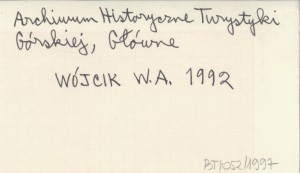 Archiwum Historyczne Turystyki
Górskiej, Główne
WÓJCIK W.A. 1992
BT/052/1997